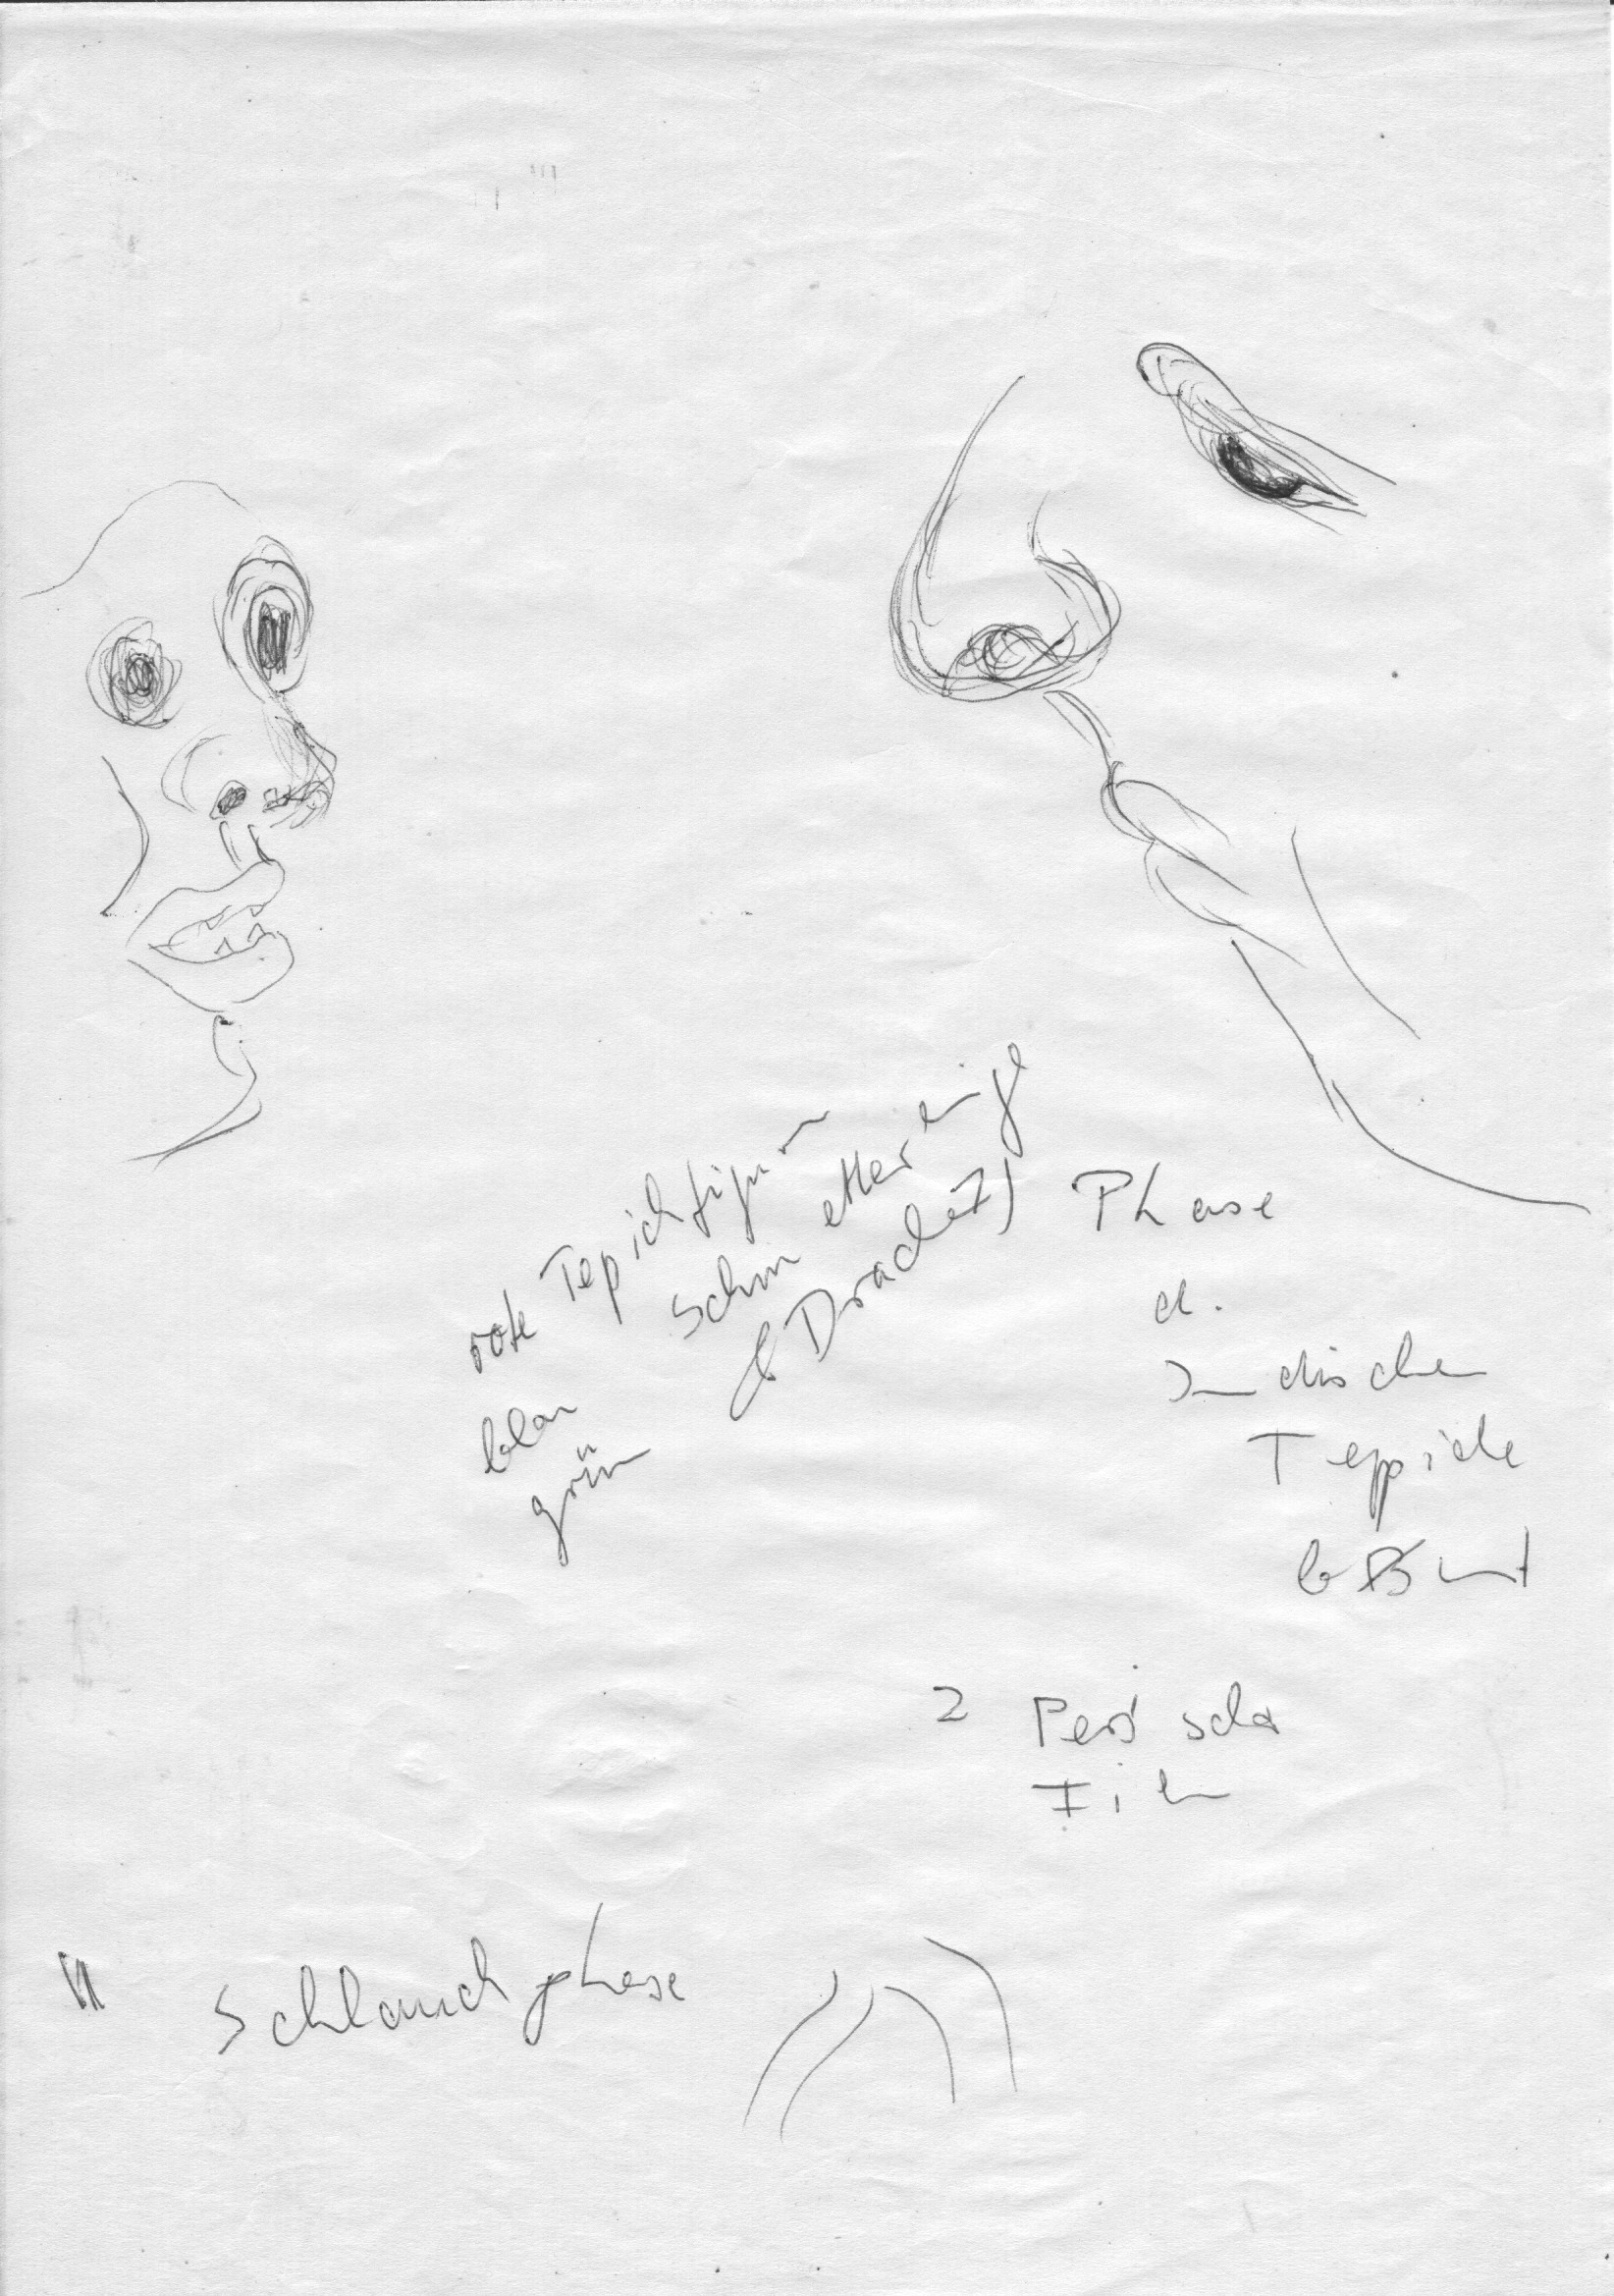 rote Tepichfiguren
blau Schmetterlinge
grün & Drache
Phase
d.
Indischen
Teppiche
bunt
2 Persische
II Schlauchphase